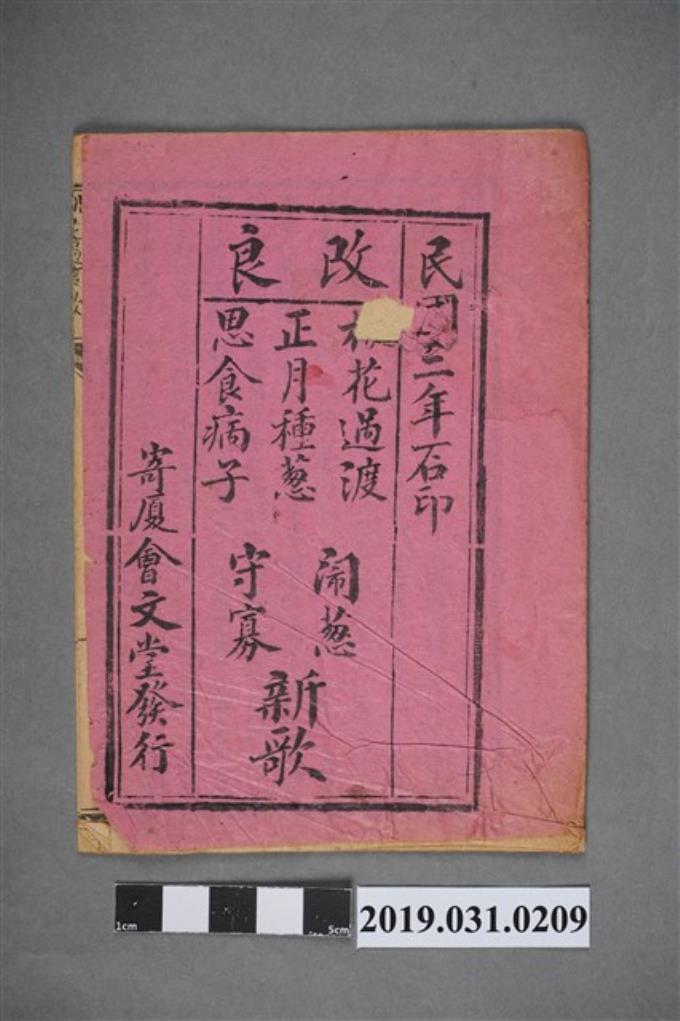 民國三年石印
改良
花過渡
正月種葱
思食病子
鬧葱
守寡
新歌
寄廈會文堂發行
1cm
5cm
2019.031.0209